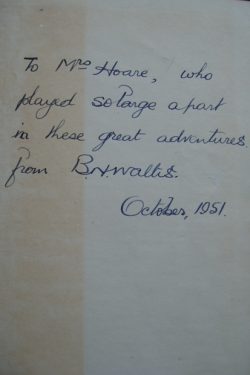 To Mrs Hoare, who
played so large a part
in these great adventures,
from B.N. Wallis.
October, 1951.